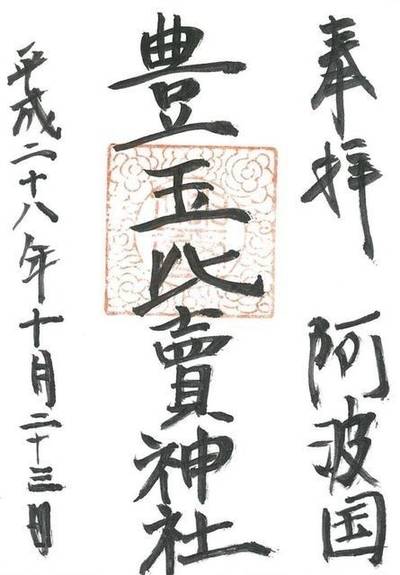 奉拝 阿波国
豊玉比賣神社
平成二十八年十月二十三日